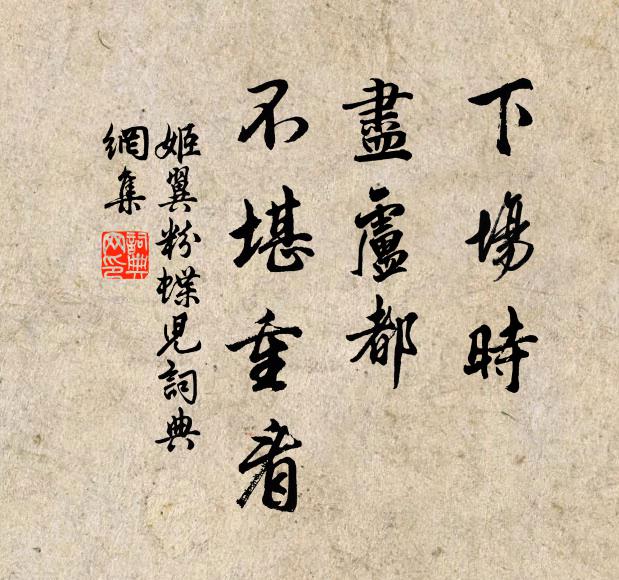 下場時
盡盧都
不堪重看
姬翼粉蝶兒詞典
網集
詞典
网印